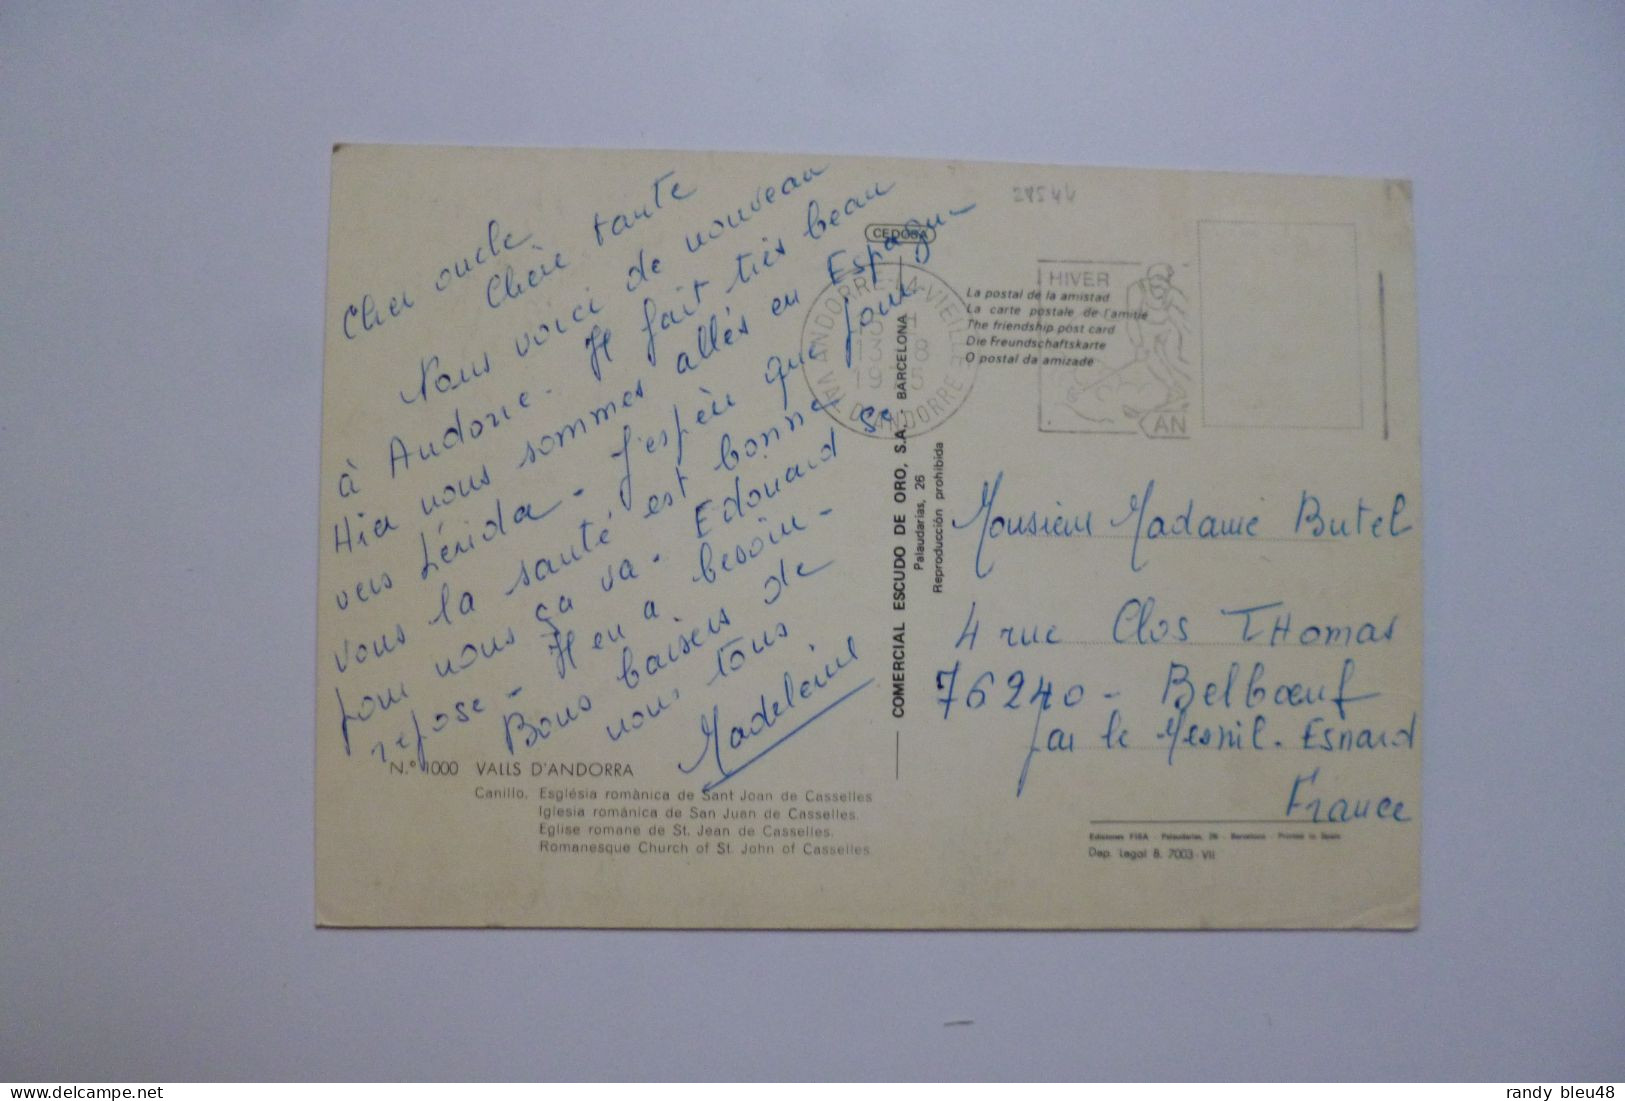 Cher oncle
Chère tante
Nous voici de nouveau
à Andorre. Il fait très beau
Hier nous sommes allés en Espagn-
vers Lérida - J'espère que pour
vous la santé est bonne
pour nous ça va. Edouard se
repose - Il en a besoin -
Bons baisers de
nous tous
Madeleine
N.º 1000 VALLS D'ANDORRA
Canillo. Església romànica de Sant Joan de Casselles
Iglesia románica de San Juan de Casselles.
Eglise romane de St. Jean de Casselles.
Romanesque Church of St. John of Casselles.
CEDOSA
COMERCIAL ESCUDO DE ORO, S.A. BARCELONA
Palaudarias, 26
Reproducción prohibida
ANDORRE-LA-VIEILLE
VAL D'ANDORRE
HIVER
AN
La postal de la amistad
La carte postale de l'amitié
The friendship post card
Die Freundschaftskarte
O postal da amizade
Monsieur Madame Butel
4 rue Clos THomas
76240 - Belbœuf
par le Mesnil. Esnard
France
Ediciones FISA - Palaudarias, 26 - Barcelona - Printed in Spain
Dep. Legal B. 7003-VII
randy bleu48